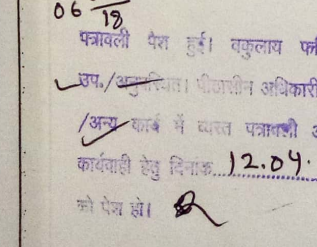 06
18
पत्रावली पेश हुई। वकुलाय
उप./अनुपस्थित। पीठासीन अधिकारी
/अन्य कार्य में व्यस्त पत्रावली
कार्यवाही हेतु दिनांक...12.04.
को पेश हो।